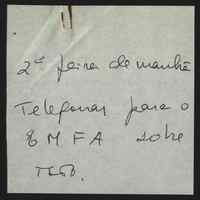 2ª feira de manhã
Telefonar para o
E M F A sobre